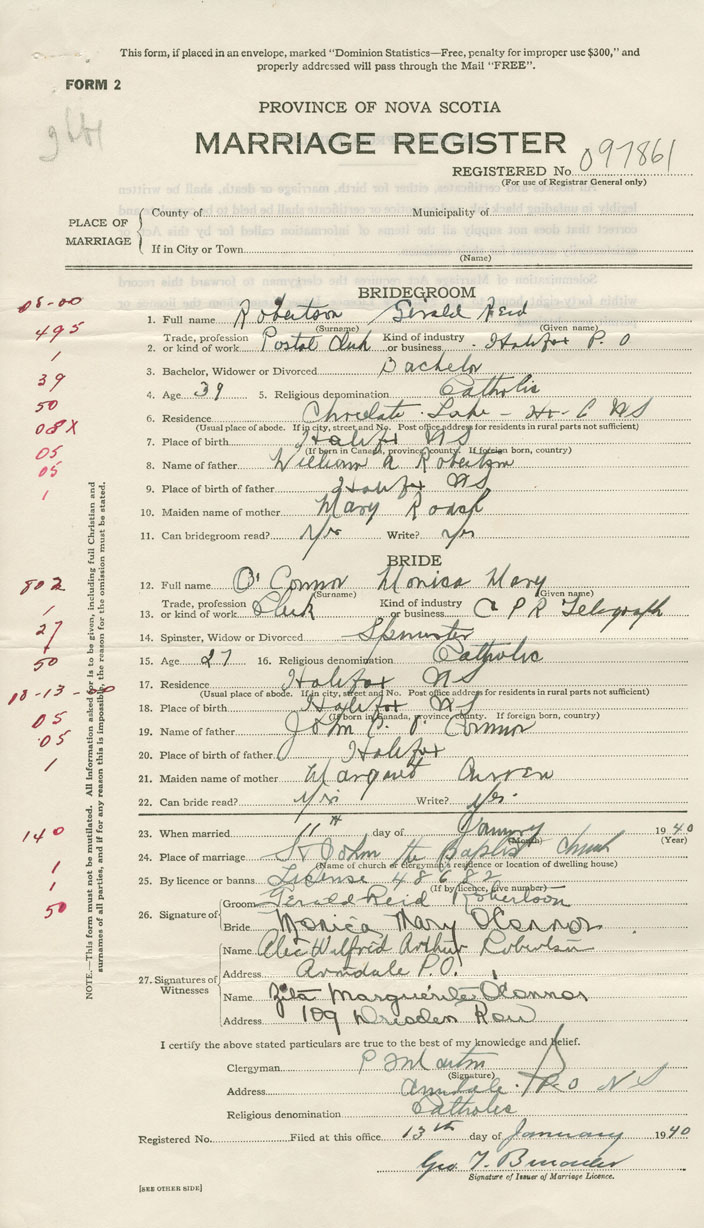 This form, if placed in an envelope, marked "Dominion Statistics—Free, penalty for improper use $300," and
properly addressed will pass through the Mail "FREE".
FORM 2
PROVINCE OF NOVA SCOTIA
MARRIAGE REGISTER
REGISTERED No. 097861
(For use of Registrar General only)
PLACE OF MARRIAGE
County of Municipality of
If in City or Town
(Name)
BRIDEGROOM
08-00
1. Full name Robertson Gerald Reid
(Surname) (Given name)
495
2. Trade, profession or kind of work Postal Clerk Kind of industry or business Halifax P. O
1
3. Bachelor, Widower or Divorced Bachelor
39
4. Age 39 5. Religious denomination Catholic
50
6. Residence Chocolate Lake - Hx. C NS
(Usual place of abode. If in city, street and No. Post office address for residents in rural parts not sufficient)
08X
7. Place of birth Halifax NS
(If born in Canada, province, county. If foreign born, country)
05
8. Name of father William A Robertson
05
9. Place of birth of father Halifax NS
1
10. Maiden name of mother Mary Roast
11. Can bridegroom read? Yes Write? yes
BRIDE
802
12. Full name O'Connor Monica Mary
(Surname) (Given name)
1
13. Trade, profession or kind of work Clerk Kind of industry or business C P R Telegraph
27
14. Spinster, Widow or Divorced Spinster
50
15. Age 27 16. Religious denomination Catholic
17. Residence Halifax NS
08-13-00
(Usual place of abode. If in city, street and No. Post office address for residents in rural parts not sufficient)
18. Place of birth Halifax NS
05
(If born in Canada, province, county. If foreign born, country)
19. Name of father John P. O'Connor
05
20. Place of birth of father Halifax
1
21. Maiden name of mother Margaret Curren
22. Can bride read? Yes Write? Yes.
140
23. When married 11th day of January 1940
(Month) (Year)
24. Place of marriage St John the Baptist Church
(Name of church or clergyman's residence or location of dwelling house)
1
25. By licence or banns License 48682
(If by licence, give number)
1
50
26. Signature of
Groom Gerald Reid Robertson
Bride Monica Mary O'Connor
27. Signatures of Witnesses
Name Alec Wilfred Arthur Robertson
Address Armdale P.O.
Name Zita Marguerite O'Connor
Address 109 Dresden Row
I certify the above stated particulars are true to the best of my knowledge and belief.
Clergyman P Martin
(Signature)
Address Armdale P.O NS
Religious denomination Catholic
Registered No. Filed at this office 13th day of January 1940
Geo. T.
Signature of Issuer of Marriage Licence.
[SEE OTHER SIDE]
NOTE.—This form must not be mutilated. All Information asked for is to be given, including full Christian and
surnames of all parties, and if for any reason this is impossible, the reason for the omission must be stated.